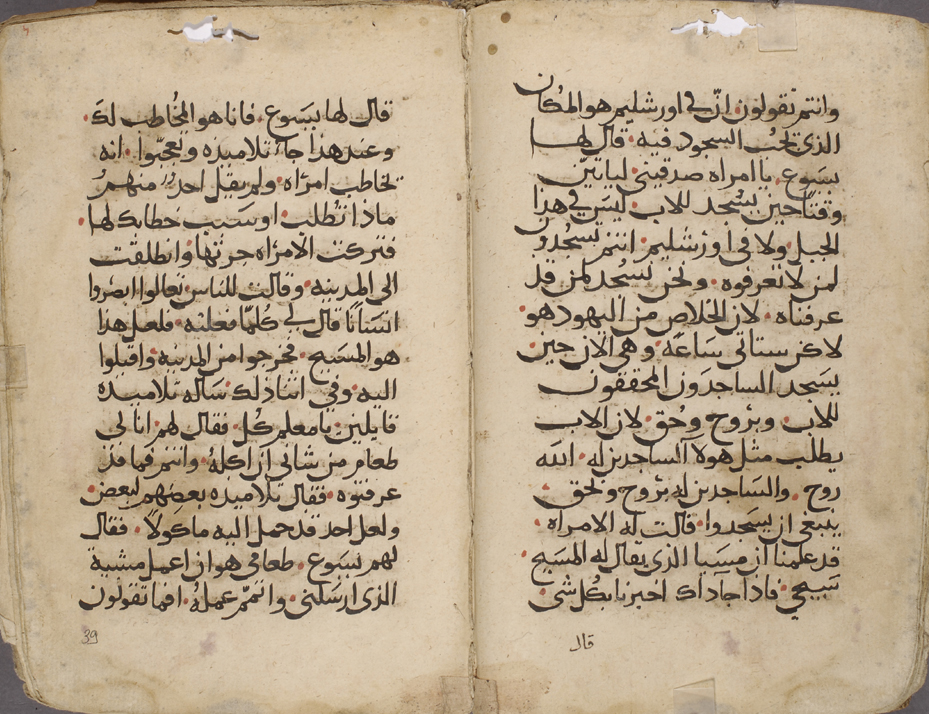 وانتم تقولون ان في اورشليم هو المكان
الذي يجب السجود فيه. قال لها
يسوع. يا امراه صدقيني لياتين
وقتا حين يسجد للاب. ليس في هذا
الجبل ولا في اورشليم. انتم تسجدون
لمن لا تعرفوه. ونحن نسجد لمن قد
عرفناه. لان الخلاص من اليهود هو.
لاكن ستاتي ساعه. وهي الان حين
يسجد الساجدون المحققون
للاب. وبروح وبحق. لان الاب
يطلب مثل هولا الساجدين له. الله
روح. والساجدين له بروح وبحق
ينبغي ان يسجدوا. قالت له الامراه.
قد علمنا ان مسيا الذي يقال له المسيح.
سيجي. فاذا جا داك اخبرنا بكل شي.
قال
قال لها يسوع. فانا هو المخاطب لك.
وعند هذا جا تلاميذه وتعجبوا. انه
يخاطب امراه. ولم يقل احد منهم
ماذا تطلب. او سبب خطابك لها.
فتركت الامراه جرتها وانطلقت
الى المدينه. وقالت للناس تعالوا ابصروا
انسانا قال لي كلما فعلته. فلعل هذا
هو المسيح. فخرجوا من المدينه واقبلوا
اليه. وفي اثنا ذلك ساله تلاميذه
قايلين يا معلم كل. فقال لهم انا لي
طعام من شاني ان اكله. وانتم فما قد
عرفتوه. فقال تلاميذه بعضهم لبعض.
ولعل احد قد حمل اليه ماكولا. فقال
لهم يسوع. طعامي هو ان اعمل مشية
الذي ارسلني. واتمم عمله. افما تقولون
39